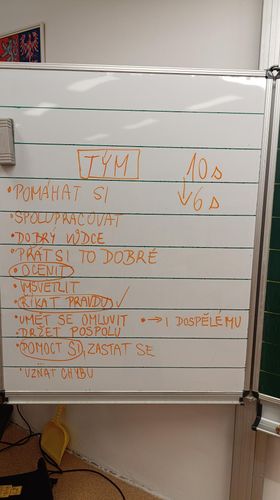 TÝM
10 s
↓ 6 s
• POMÁHAT SI
• SPOLUPRACOVAT
• DOBRÝ VŮDCE
• PŘÁT SI TO DOBRÉ
• OCENIT
• VYSVĚTLIT
• ŘÍKAT PRAVDU ✓
• UMĚT SE OMLUVIT • → I DOSPĚLÉMU
• DRŽET POSPOLU
• POMOCT SI, ZASTAT SE
• UZNAT CHYBU